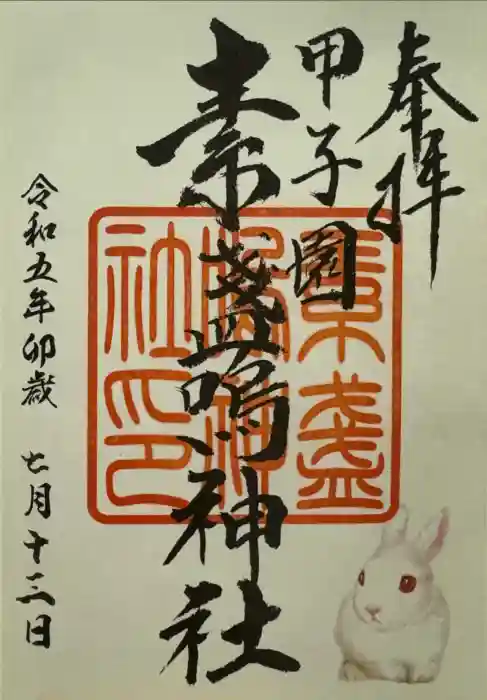 奉拝
甲子園
素盞嗚神社
素盞
嗚神
社印
令和五年卯歳 七月十三日